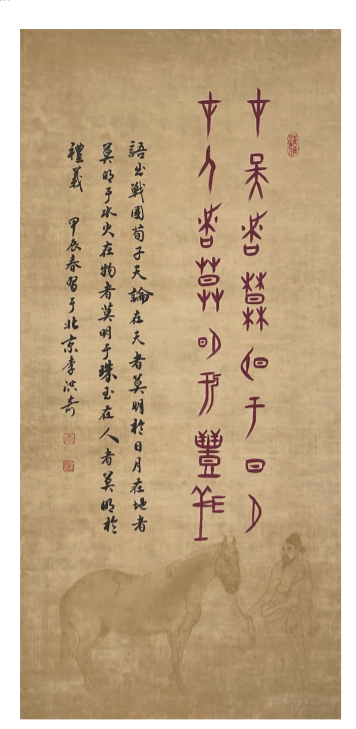 在天者莫明于日月
在人者莫明于禮義
語出戰國荀子天論在天者莫明於日月在地者
莫明于水火在物者莫明于珠玉在人者莫明於
禮義 甲辰春習于北京李洪奇